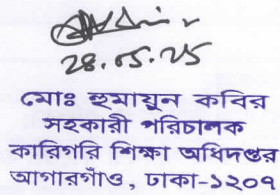 28.05.25
মোঃ হুমায়ুন কবির
সহকারী পরিচালক
কারিগরি শিক্ষা অধিদপ্তর
আগারগাঁও, ঢাকা-১২০৭